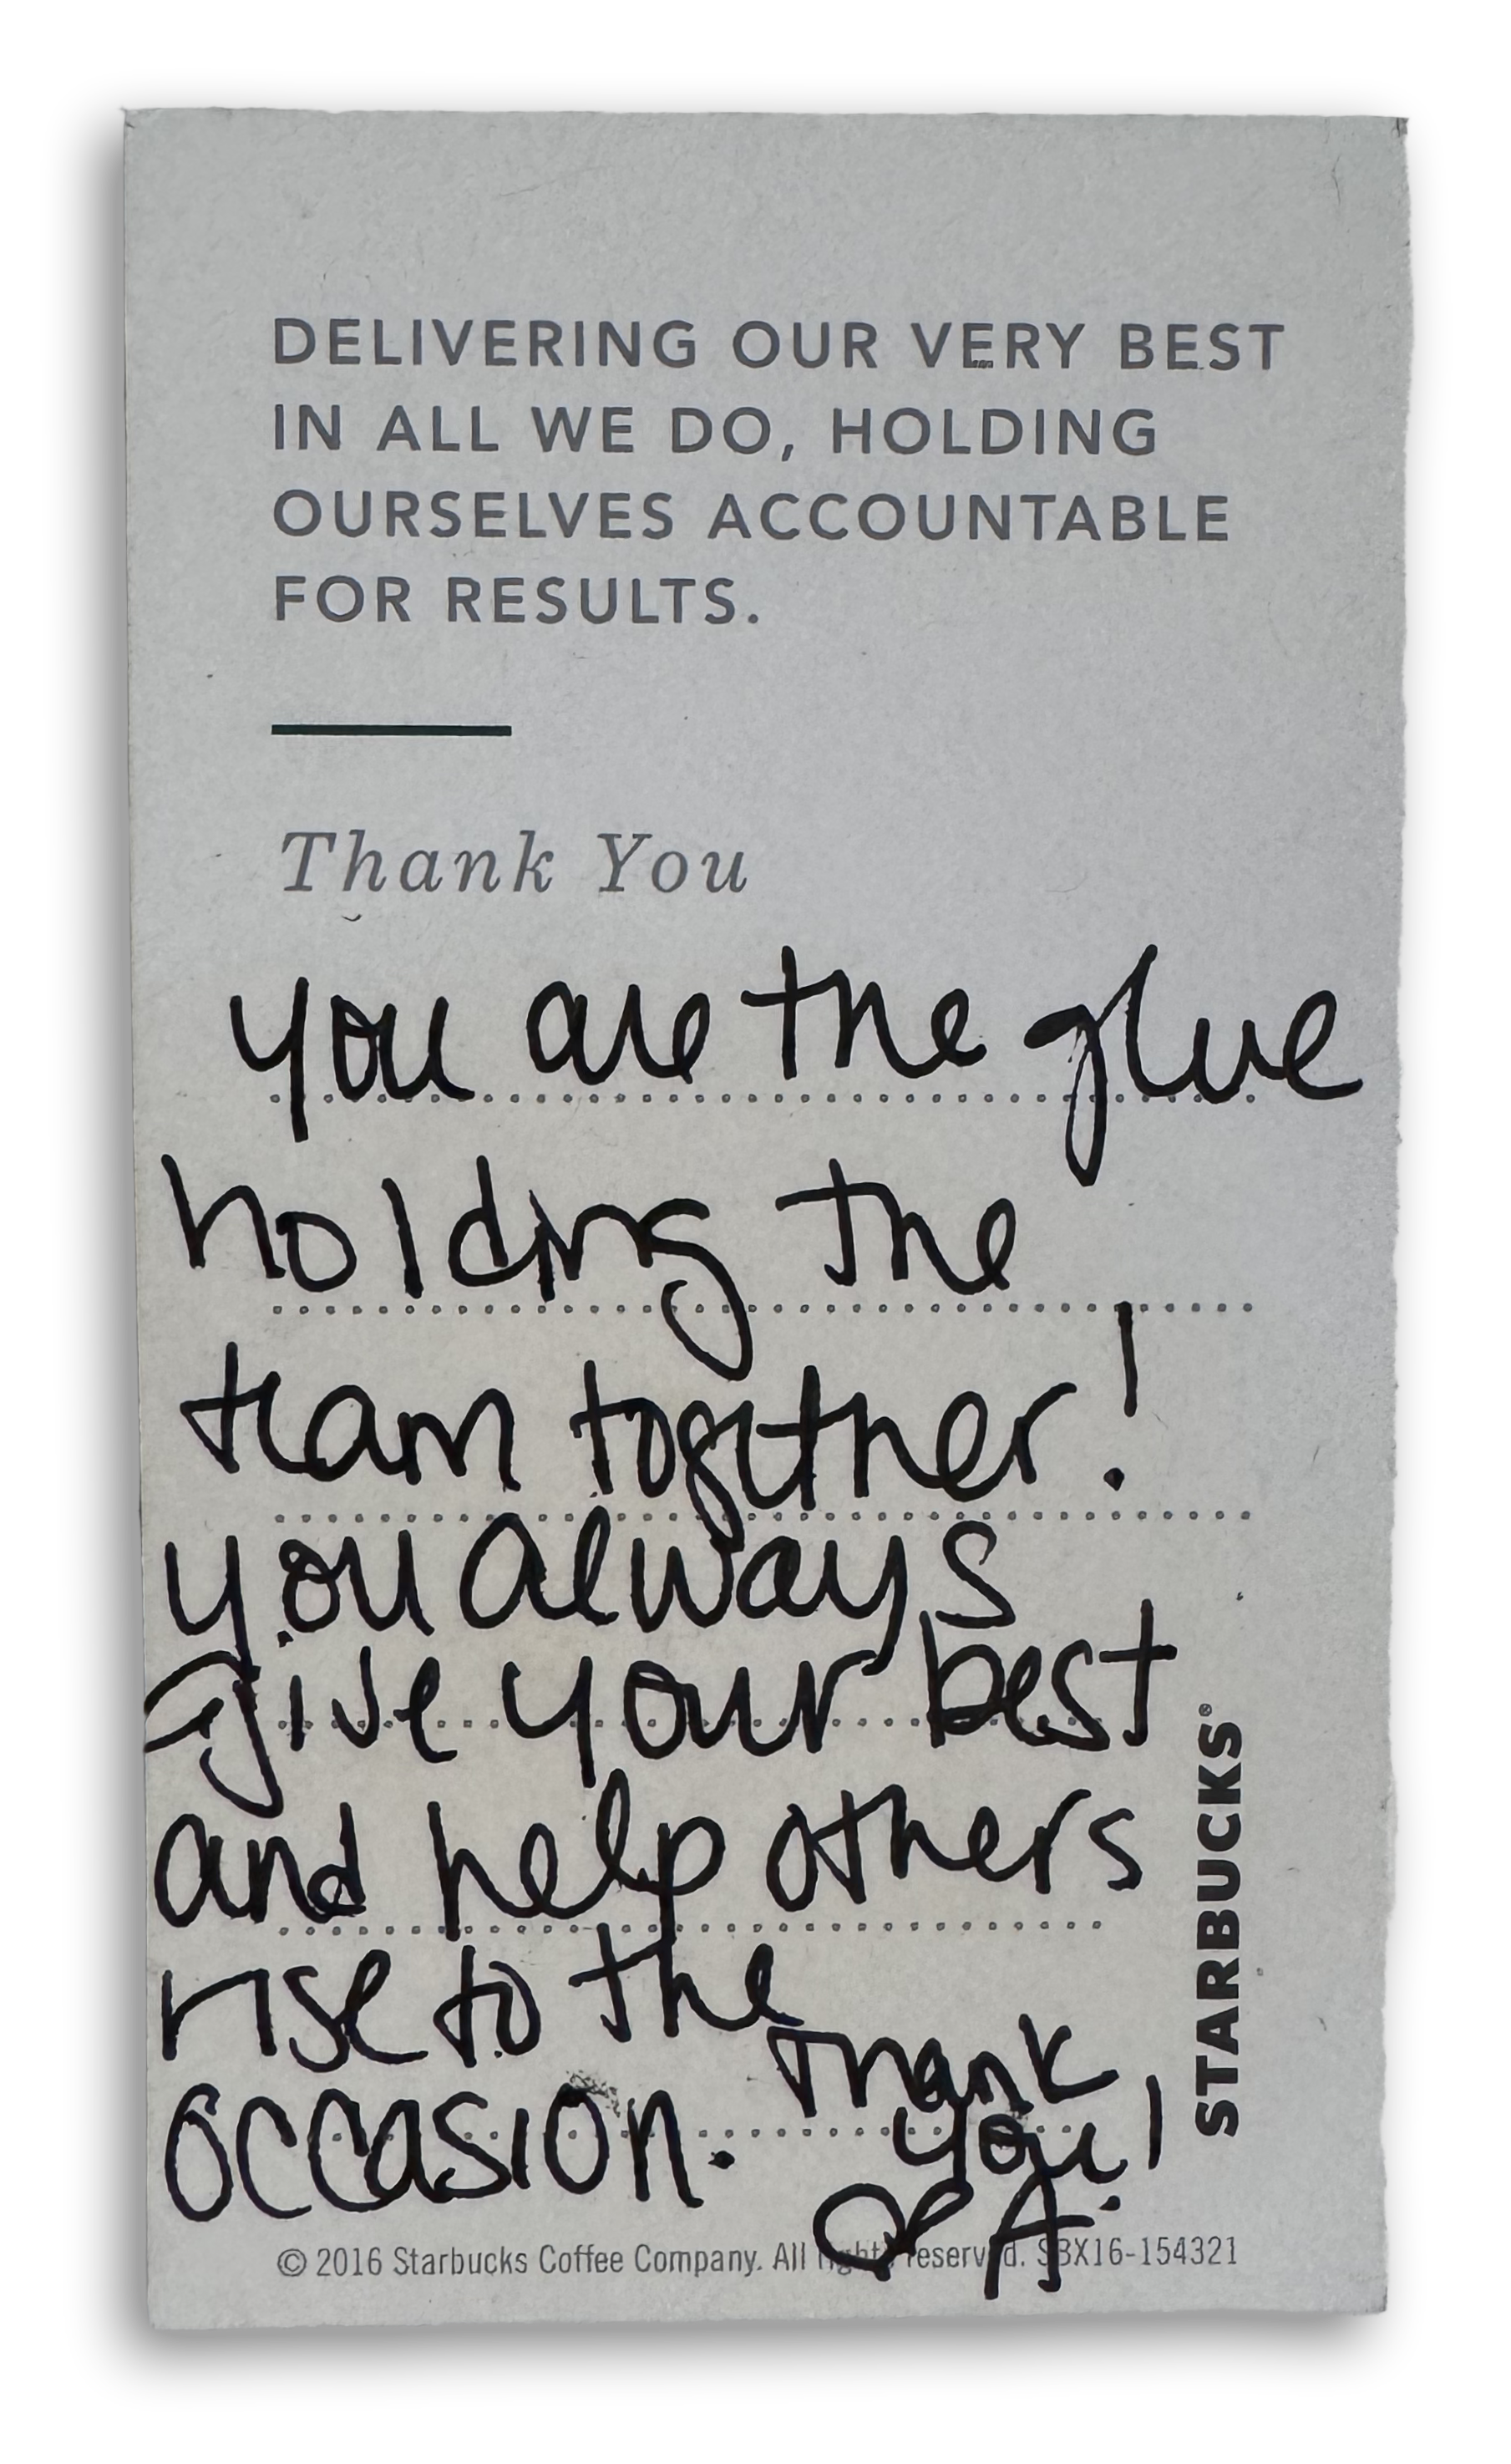 DELIVERING OUR VERY BEST
IN ALL WE DO, HOLDING
OURSELVES ACCOUNTABLE
FOR RESULTS.
Thank You
you are the glue
holding the
team together!
you always
give your best
and help others
rise to the
occasion. Thank
you!
A.
STARBUCKS®
© 2016 Starbucks Coffee Company. All rights reserved. SBX16-154321